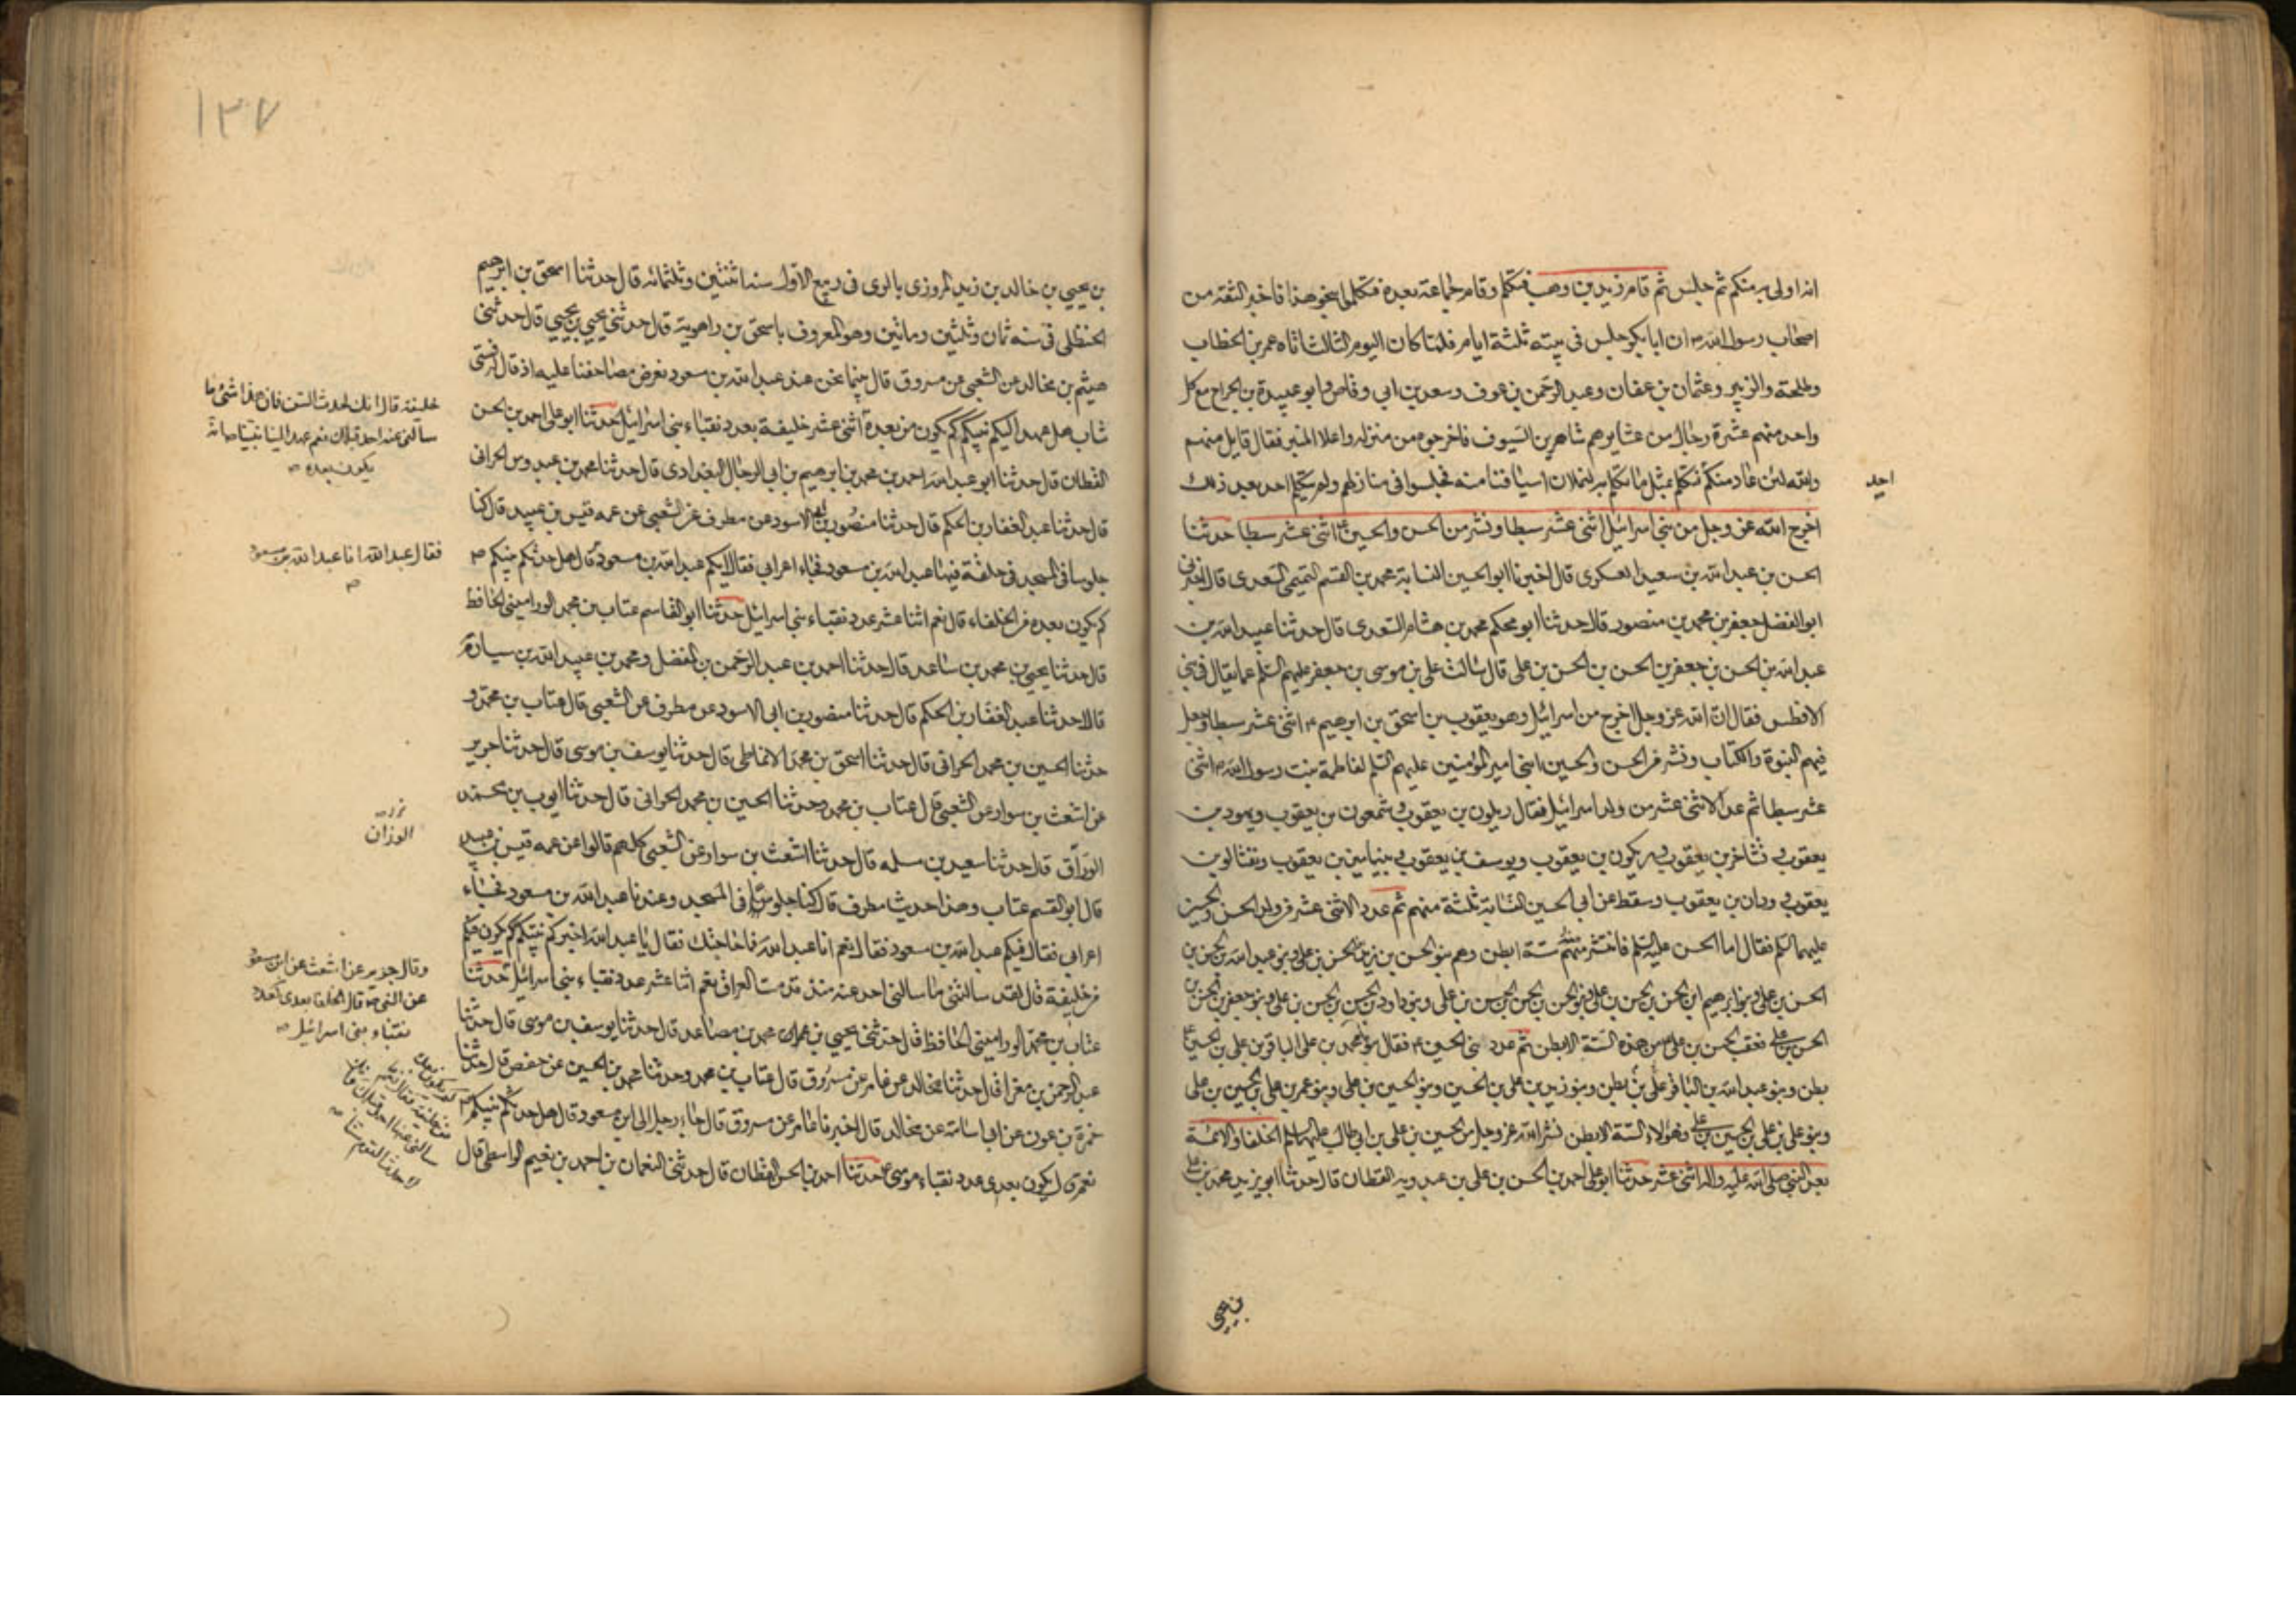 انه اولى به منكم ثم جلس ثم قام زيد بن وهب فتكلم وقام جماعة بعده فتكلموا بنحو هذا فاخبر الثقة من
اصحاب رسول الله ص ان ابا بكر جلس في بيته ثلثة ايام فلما كان اليوم الثالث اتاه عمر بن الخطاب
وطلحة والزبير وعثمان بن عفان وعبد الرحمن بن عوف وسعد بن ابي وقاص وابو عبيدة بن الجراح مع كل
واحد منهم عشرة رجال من عشايرهم شاهرين السيوف فاخرجوه من منزله واعلا المنبر فقال قايل منهم
والله لئن عاد منكم احد فتكلم بمثل ما تكلم به لنملان اسيافنا منه فجلسوا في منازلهم ولم يتكلم احد بعد ذلك
اخرج الله عز وجل من بني اسرائيل اثني عشر سبطا ونشر من الحسن والحسين ع اثني عشر سبطا حدثنا
الحسن بن عبد الله بن سعيد العسكري قال اخبرنا ابو الحسين النسابة محمد بن القسم التميمي السعدي قال اخبرني
ابو الفضل جعفر بن محمد بن منصور قال حدثنا ابو محكم محمد بن هشام السعدي قال حدثنا عبيد الله بن
عبد الله بن الحسن بن جعفر بن الحسن بن الحسن بن علي قال سالت علي بن موسى بن جعفر عليهم السلم عما يقال في بني
الافطس فقال ان الله عز وجل اخرج من اسرائيل وهو يعقوب بن اسحق بن ابرهيم ع اثني عشر سبطا وجعل
فيهم النبوة والكتاب ونشر من الحسن والحسين ابني امير المؤمنين عليهم السلم لفاطمة بنت رسول الله ص اثني
عشر سبطا ثم عد الاثني عشر من ولد اسرائيل فقال ريلون بن يعقوب وشمعون بن يعقوب ويهود بن
يعقوب ويشاخر بن يعقوب وريكون بن يعقوب ويوسف بن يعقوب وبنيامين بن يعقوب ونفثالي بن
يعقوب ودان بن يعقوب وسقط عن ابي الحسين النسابة ثلثة منهم ثم عدد الاثني عشر من ولد الحسن والحسين
عليهما السلم فقال اما الحسن عليه السلم فانتشر منه ستة ابطن وهم بنو الحسن بن زيد بن الحسن بن علي وبنو عبد الله بن الحسن بن
الحسن بن علي وبنو ابرهيم ابن الحسن بن الحسن بن علي وبنو الحسن بن الحسن بن الحسن بن علي وبنو داود بن الحسن بن الحسن بن علي وبنو جعفر بن الحسن بن
الحسن بن علي فعقب الحسن بن علي من هذه الستة الابطن ثم عدد بني الحسين ع فقال بنو محمد بن علي الباقر بن علي بن الحسين ع
بطن وبنو عبد الله بن الباقر علي بن بطن وبنو زيد بن علي بن الحسين وبنو الحسين بن علي وبنو عمر بن علي بن الحسين بن علي
وبنو علي بن علي بن الحسين بن علي وهؤلاء الستة الابطن نشر الله عز وجل من الحسين بن علي بن ابي طالب عليهما السلم الخلفا والائمة
بعد النبي صلى الله عليه واله اثنى عشر حدثنا ابو علي احمد بن الحسن بن علي بن عبدويه القطان قال حدثنا ابو يزيد محمد بن
احد
بن يحيى
١٣٧
بن يحيى بن خالد بن زيد المروزي بالري في ربيع الاول سنة اثنتين وثلثمائه قال حدثنا اسحق بن ابرهيم
الحنظلي في سنه ثمان وثلثين ومائتين وهو المعروف باسحق بن راهويه قال حدثني يحيى بن يحيى قال حدثني
هيثم بن مخالد عن الشعبي عن مسروق قال بينما نحن عند عبد الله بن مسعود نعرض مصاحفنا عليه اذ قال له فتى
شاب هل عهد اليكم نبيكم كم يكون من بعده اثنى عشر خليفة بعدد نقباء بني اسرائيل حدثنا ابو علي احمد بن الحسن
القطان قال حدثنا ابو عبد الله احمد بن محمد بن ابرهيم بن ابي الرجال البغدادي قال حدثنا محمد بن عبدوس الحراني
قال حدثنا عبد الغفار بن الحكم قال حدثنا منصور بن ابي الاسود عن مطرف عن الشعبي عن عمه قيس بن عبيد قال كنا
جلوسا في المسجد في حلقة فيها عبد الله بن مسعود فجاء اعرابي فقال ايكم عبد الله بن مسعود قال هل حدثكم نبيكم ص
كم يكون بعده من الخلفاء قال نعم اثنا عشر عدد نقباء بني اسرائيل حدثنا ابو القاسم عتاب بن محمد الوراميني الحافظ
قال حدثنا يحيى بن محمد بن صاعد قال حدثنا احمد بن عبد الرحمن بن الفضل ومحمد بن عبيد الله بن سوادة
قالا حدثنا عبد الغفار بن الحكم قال حدثنا منصور بن ابي الاسود عن مطرف عن الشعبي قال عتاب بن محمد و
حدثنا الحسين بن محمد الحراني قال حدثنا اسحق بن محمد الانماطي قال حدثنا يوسف بن موسى قال حدثنا جرير
عن اشعث بن سوار عن الشعبي قال عتاب بن محمد وحدثنا الحسين بن محمد الحراني قال حدثنا ايوب بن محمد
الوراق قال حدثنا سعيد بن مسلمه قال حدثنا اشعث بن سوار عن الشعبي كلهم قالوا عن عمه قيس بن عبيد
قال ابو القسم عتاب وهذا حديث مطرف قال كنا جلوسا في المسجد وعندنا عبد الله بن مسعود فجاء
اعرابي فقال فيكم عبد الله بن مسعود فقال نعم انا عبد الله فما حاجتك فقال يا عبد الله اخبركم نبيكم كم يكون فيكم
من خليفة قال لقد سالتني ما سالني احد عنه منذ قدمت العراق نعم اثنا عشر عدد نقباء بني اسرائيل حدثنا
عتاب بن محمد الوراميني الحافظ قال حدثني يحيى بن محمد بن صاعد قال حدثنا يوسف بن موسى قال حدثنا
عبد الرحمن بن مغرا قال حدثنا مخالد عن عامر عن مسروق قال عتاب بن محمد وحدثنا محمد بن الحسين عن حفص قال حدثنا
حمزة بن عون عن ابي اسامة عن مخالد قال اخبرنا عامر عن مسروق قال جاء رجل الى ابن مسعود قال هل حدثكم نبيكم ص
نعم قال يكون بعدي عدد نقباء موسى ع حدثنا احمد بن الحسن القطان قال حدثني النعمان بن احمد بن نعيم الواسطي قال
خليفة قال انك لحدث السن فان هذا شئ ما
سالني عنه احد قبلك نعم عهد الينا نبينا ص انه
يكون بعده
فقال عبد الله انا عبد الله بن مسعود
الوزان
وقال جرير عن اشعث عن ابن مسعود
عن النبي ص قال الخلفا بعدي كعدد
نقباء بني اسرائيل